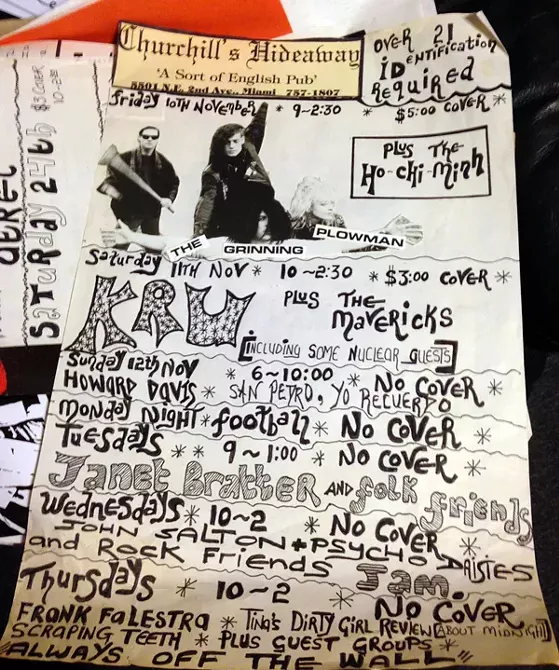 Churchill's Hideaway
'A Sort of English Pub'
5501 N.E. 2nd Ave., Miami 757-1807
OVER 21
IDENTIFICATION
REQUIRED
Friday 10TH NOVEMBER * 9-2:30 * $5:00 COVER *
PLUS THE
HO-CHI-MINH
THE GRINNING PLOWMAN
Saturday 11TH NOV * 10-2:30 * $3:00 COVER *
KRU
PLUS THE
MAVERICKS
[INCLUDING SOME NUCLEAR GUESTS]
Sunday 12th NOV * 6-10:00 * NO COVER *
HOWARD DAVIS * SAN PEDRO, YO RECUERDO
MONDAY NIGHT * football * NO COVER *
TUESDAYS * * 9-1:00 * NO COVER *
Janet Bratter AND folk friends
WEDNESDAYS * 10-2 * NO COVER *
JOHN SALTON + PSYCHO DAISIES
and Rock Friends Jam.
Thursdays * 10-2 * NO COVER
FRANK FALESTRA * TINA'S DIRTY GIRL REVIEW [ABOUT MIDNIGHT]
SCRAPING TEETH * PLUS GUEST GROUPS *
ALWAYS OFF THE WALL
SATURDAY 24th
$3 COVER